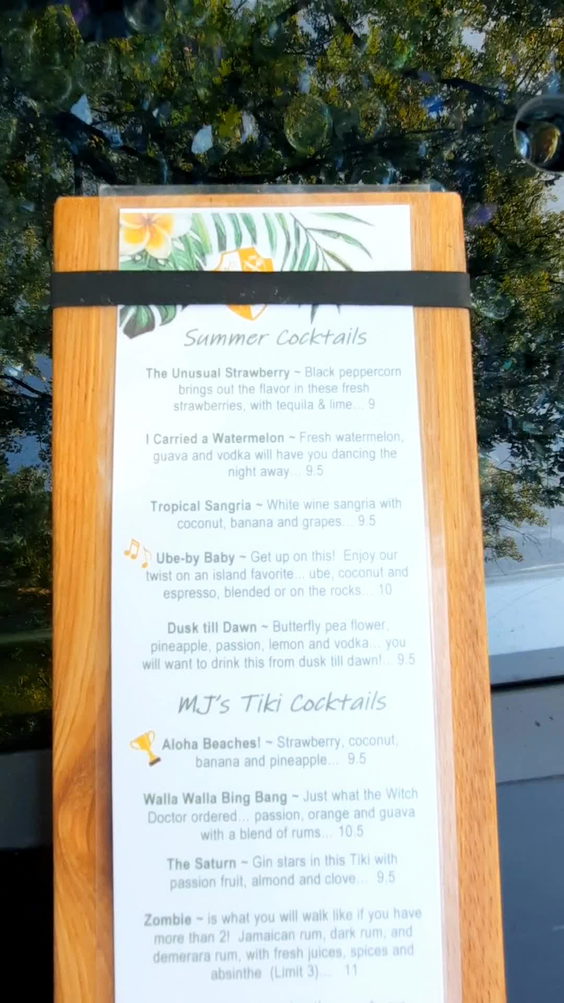 Summer Cocktails
The Unusual Strawberry ~ Black peppercorn
brings out the flavor in these fresh
strawberries, with tequila & lime... 9
I Carried a Watermelon ~ Fresh watermelon,
guava and vodka will have you dancing the
night away... 9.5
Tropical Sangria ~ White wine sangria with
coconut, banana and grapes... 9.5
Ube-by Baby ~ Get up on this! Enjoy our
twist on an island favorite... ube, coconut and
espresso, blended or on the rocks... 10
Dusk till Dawn ~ Butterfly pea flower,
pineapple, passion, lemon and vodka... you
will want to drink this from dusk till dawn!... 9.5
MJ's Tiki Cocktails
Aloha Beaches! ~ Strawberry, coconut,
banana and pineapple... 9.5
Walla Walla Bing Bang ~ Just what the Witch
Doctor ordered... passion, orange and guava
with a blend of rums... 10.5
The Saturn ~ Gin stars in this Tiki with
passion fruit, almond and clove... 9.5
Zombie ~ is what you will walk like if you have
more than 2! Jamaican rum, dark rum, and
demerara rum, with fresh juices, spices and
absinthe (Limit 3)... 11